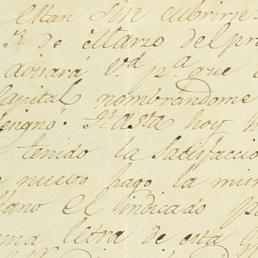 estan sin cubrirse
3 de Marzo del pr
avisará Vd pª que
Capital nombrandome
Hasta hoy
tenido la satisfaccio
nuevo hago la mism
el indicado p
letra de esta